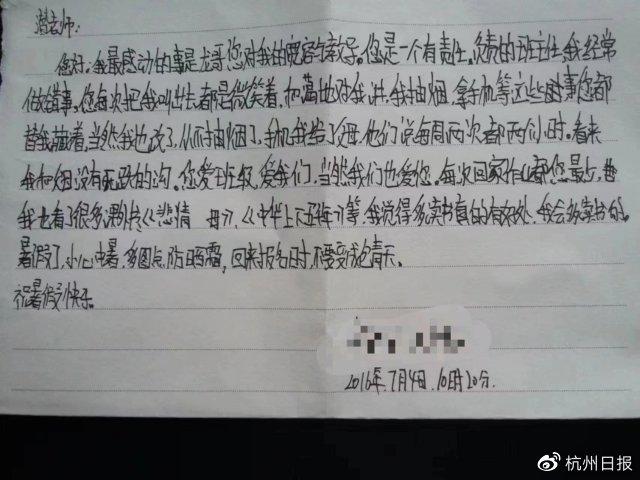 潜老师:
您好:我最感动的事是龙哥,您对我的宽容与教子。您是一个有责任、负责的班主任,我经常
做错事。您每次把我叫出去都是微笑着,和蔼地对我讲,我抽烟、拿手机等这些时事您都
替我藏着,当然我也改了,从不抽烟了,手机我给了父母,他们说每周两次都两个小时。看来
我和烟没有无跃的沟。您爱班级,爱我们,当然我们也爱您。每次回家作业都您最少,
我也看了很多课外《悲情 母》,《中华上下五年》等,我觉得多卖书真的有好处,我会多卖书的。
暑假了,小心中暑,多图点,防日晒霜,回来报名日时,不要变成包青天。
祝暑假快乐。
2016年.7月4日.10时20分.
杭州日报